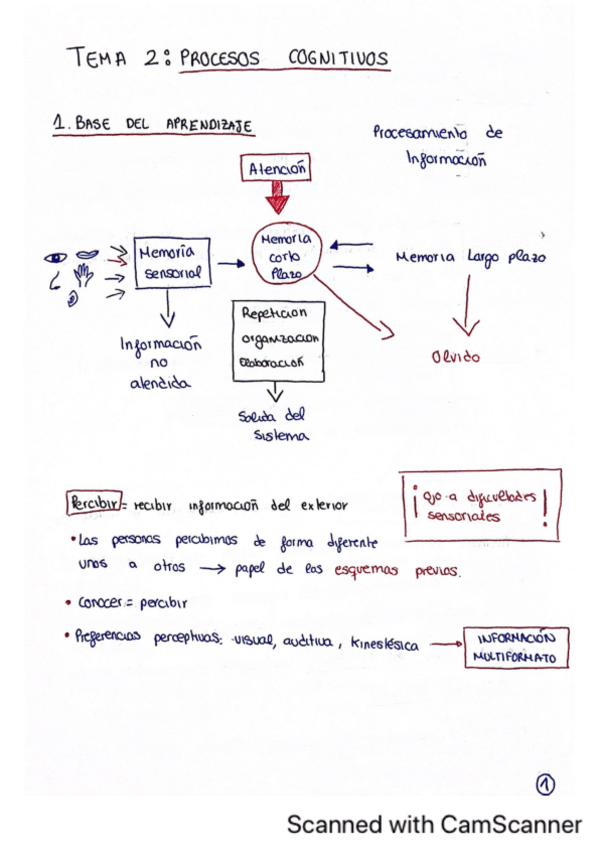 TEMA 2: PROCESOS COGNITIVOS
1. BASE DEL APRENDIZAJE
Procesamiento de
Información
Atención
Memoria
sensorial
Memoria
corto
Plazo
Memoria Largo plazo
Información
no
atendida
Repetición
organización
Elaboración
Salida del
Sistema
Olvido
Percibir = recibir información del exterior
¡Ojo a dificultades
sensoriales!
• Las personas percibimos de forma diferente
unos a otros → papel de los esquemas previos.
• Conocer = percibir
• Preferencias perceptivas: visual, auditiva, kinestésica →
INFORMACIÓN
MULTIFORMATO
1
Scanned with CamScanner